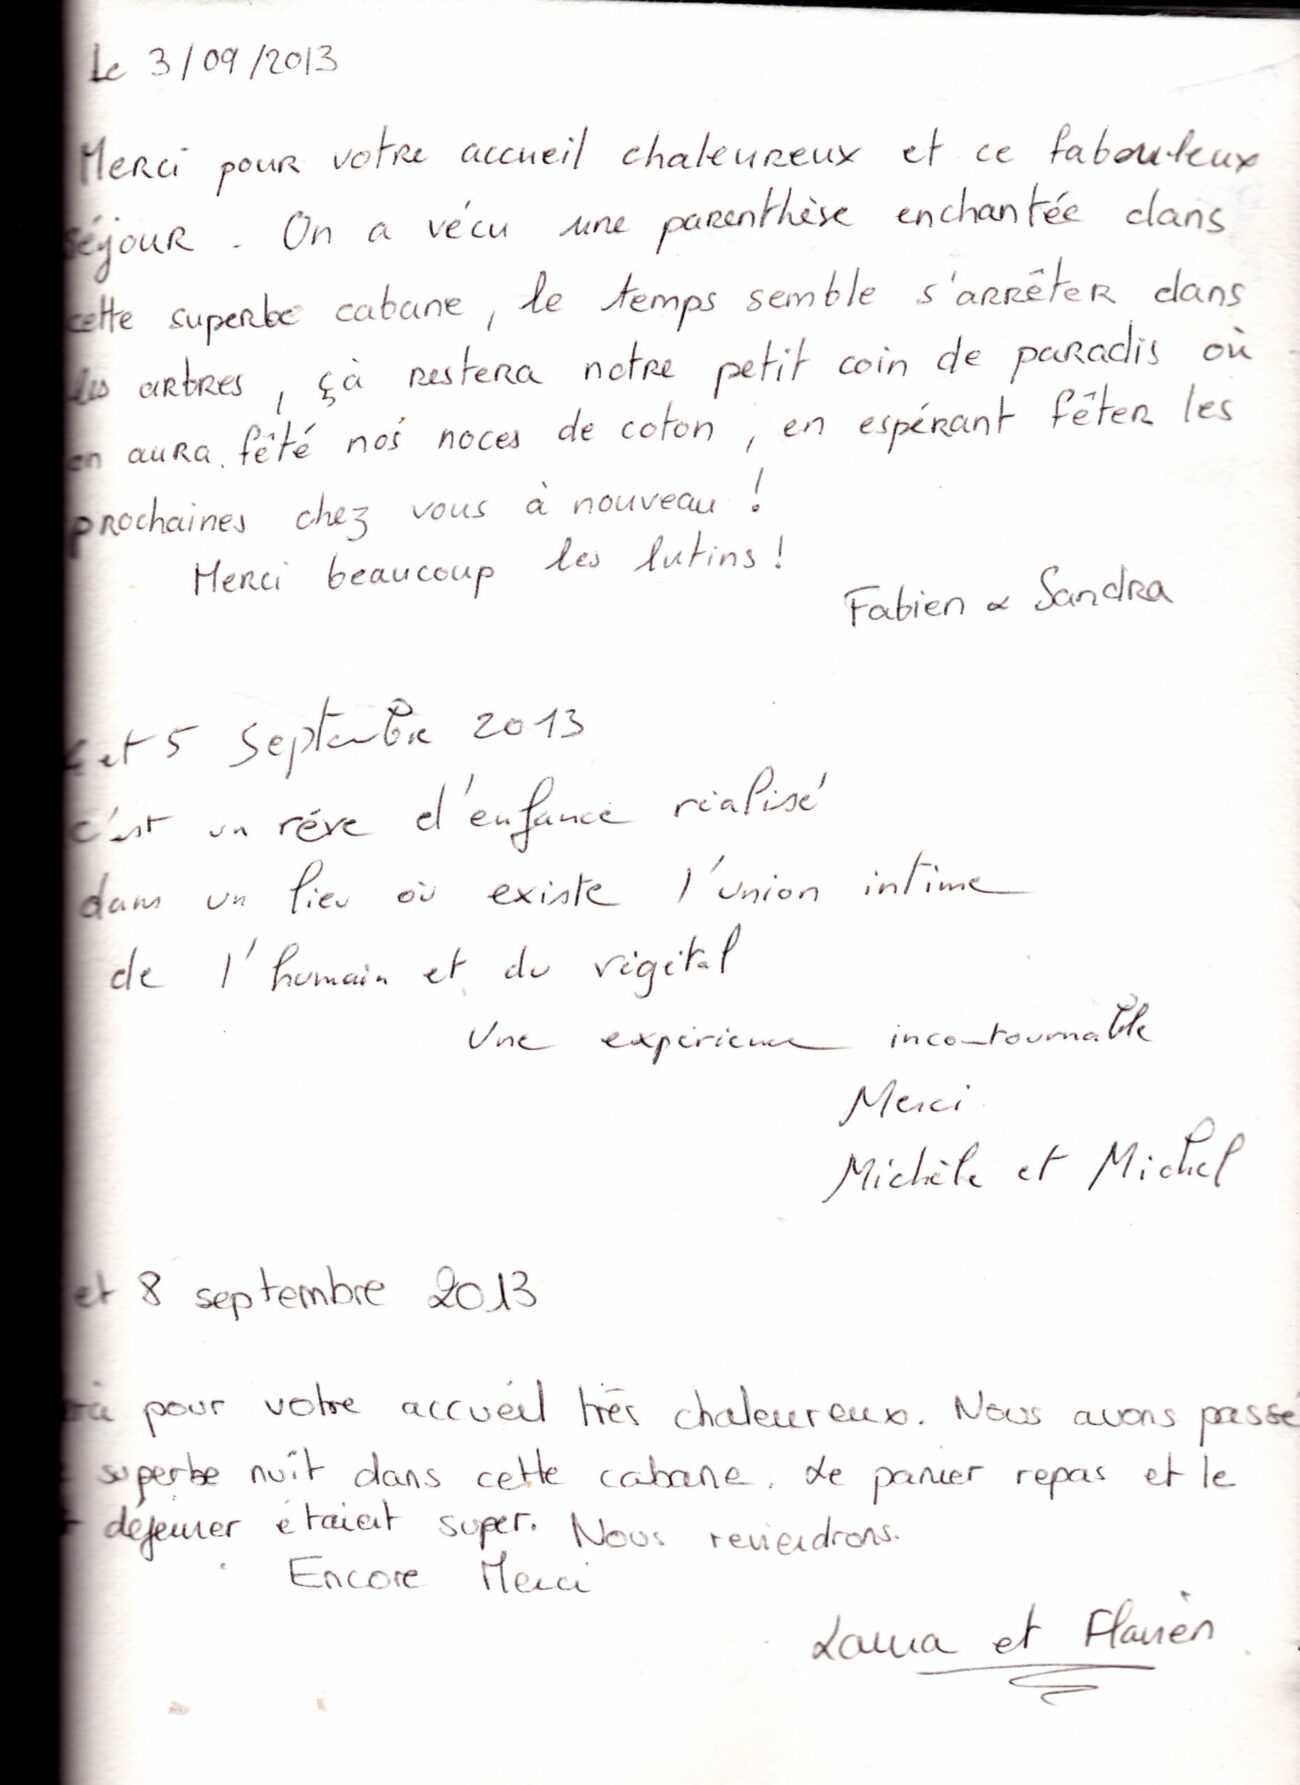 Le 3/09/2013
Merci pour votre accueil chaleureux et ce fabouleux
séjour. On a vécu une parenthèse enchantée dans
cette superbe cabane, le temps semble s'arrêter dans
les arbres, çà restera notre petit coin de paradis où
on aura fêté nos noces de coton, en espérant fêter les
prochaines chez vous à nouveau !
Merci beaucoup les lutins !
Fabien & Sandra
4 et 5 Septembre 2013
C'est un rêve d'enfance réalisé
dans un lieu où existe l'union intime
de l'humain et du végétal
Une expérience incontournable
Merci
Michèle et Michel
et 8 septembre 2013
pour votre accueil très chaleureux. Nous avons passé
superbe nuit dans cette cabane. Le panier repas et le
déjeuner étaient super. Nous reviendrons.
Encore Merci
Laura et Flavien